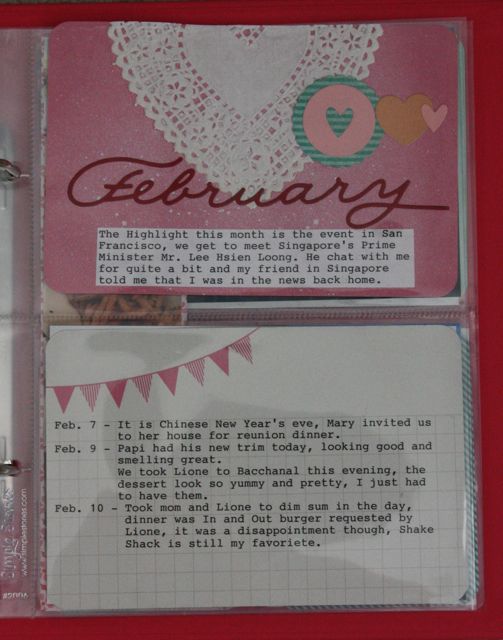 February
The Highlight this month is the event in San
Francisco, we get to meet Singapore's Prime
Minister Mr. Lee Hsien Loong. He chat with me
for quite a bit and my friend in Singapore
told me that I was in the news back home.
Feb. 7 - It is Chinese New Year's eve, Mary invited us
to her house for reunion dinner.
Feb. 9 - Papi had his new trim today, looking good and
smelling great.
We took Lione to Bacchanal this evening, the
dessert look so yummy and pretty, I just had
to have them.
Feb. 10 - Took mom and Lione to dim sum in the day,
dinner was In and Out burger requested by
Lione, it was a disappointment though, Shake
Shack is still my favoriete.
Simple Stories
www.simplestories.com